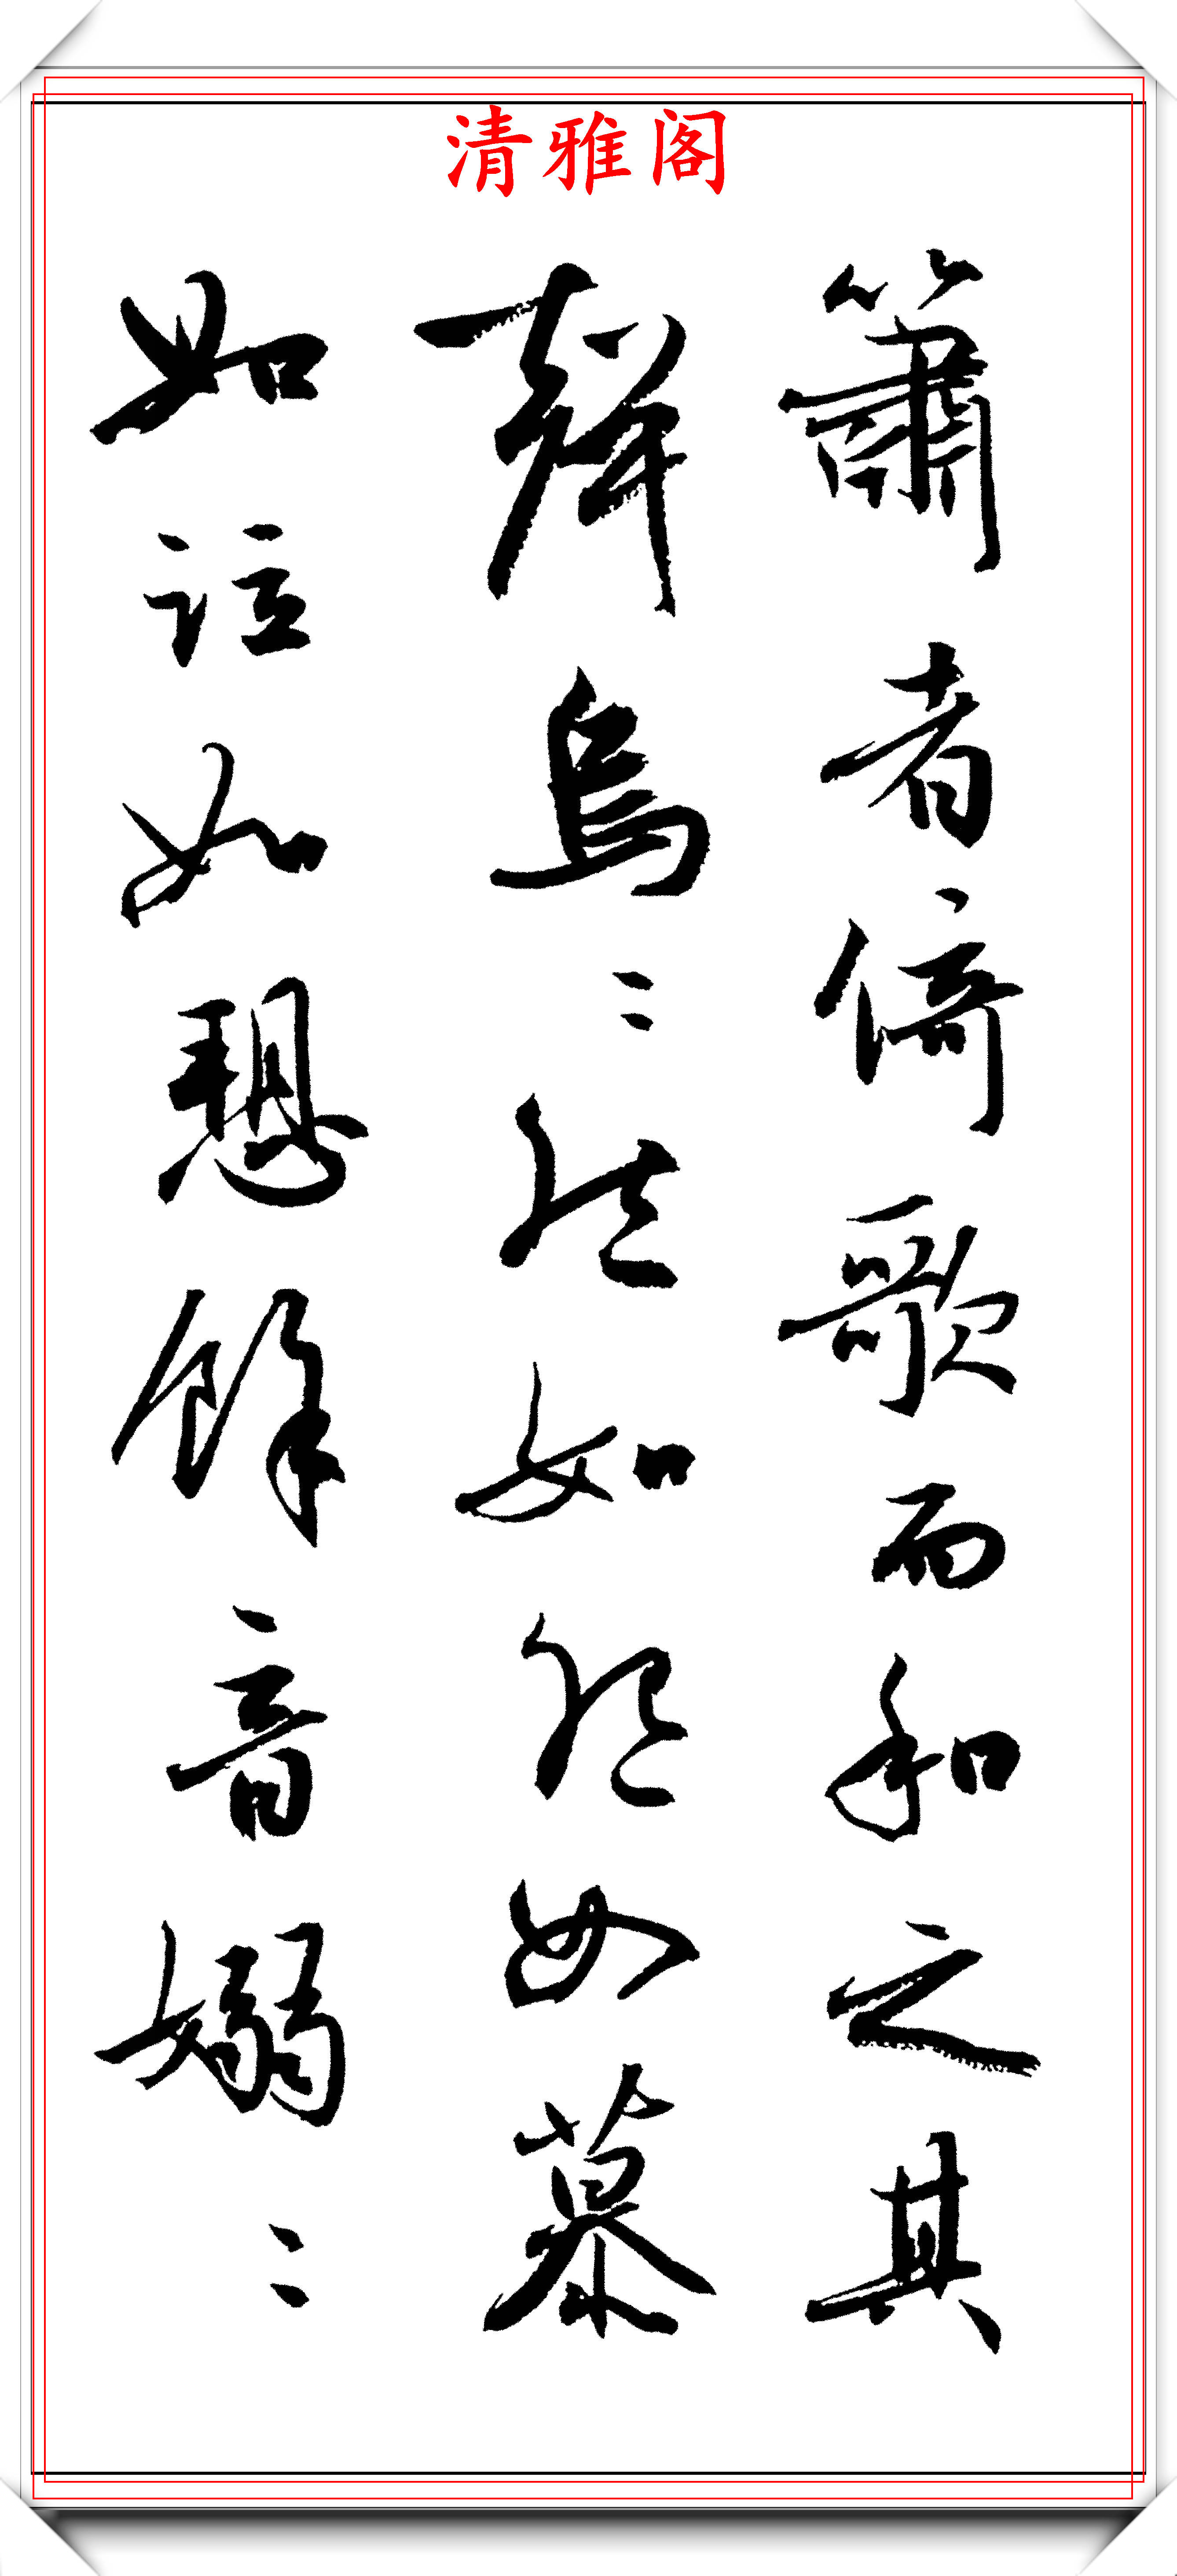 清雅阁
簫者倚歌而和之其
聲烏〻然如怨如慕
如泣如愬餘音嫋〻